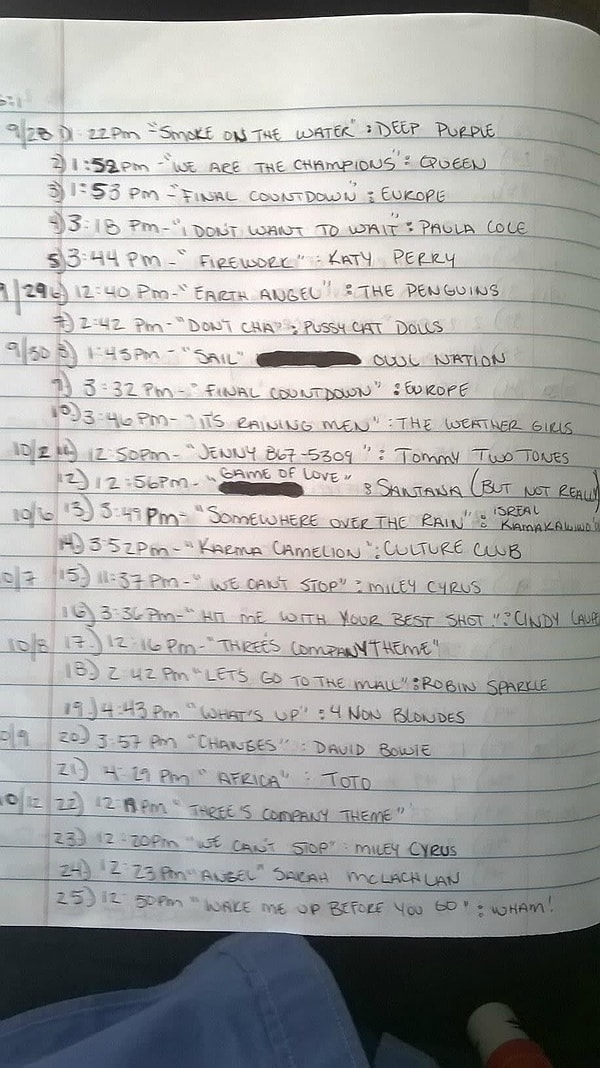 9/28 1) 1:22pm - "SMOKE ON THE WATER" : DEEP PURPLE
2) 1:52pm - "WE ARE THE CHAMPIONS" : QUEEN
3) 1:53 pm - "FINAL COUNTDOWN" : EUROPE
4) 3:18 pm - "I DON'T WANT TO WAIT" : PAULA COLE
5) 3:44 pm - "FIREWORK" : KATY PERRY
9/29 6) 12:40 pm - "EARTH ANGEL" : THE PENGUINS
7) 2:42 pm - "DON'T CHA" : PUSSY CAT DOLLS
9/30 8) 1:45pm - "SAIL" OWL NATION
9) 3:32 pm - "FINAL COUNTDOWN" : EUROPE
10) 3:46 pm - "IT'S RAINING MEN" : THE WEATHER GIRLS
10/2 11) 12:50pm - "JENNY 867-5309" : TOMMY TWO TONES
12) 12:56pm - "GAME OF LOVE" : SANTANA (BUT NOT REALLY
10/6 13) 3:49pm - "SOMEWHERE OVER THE RAIN" : ISREAL
14) 3:52pm - "KARMA CAMELION" : CULTURE CLUB
10/7 15) 11:37 pm - "WE CAN'T STOP" : MILEY CYRUS
16) 3:36pm - "HIT ME WITH YOUR BEST SHOT" : CINDY
10/8 17.) 12:16 pm - "THREE'S COMPANY THEME"
18.) 2:42 pm "LET'S GO TO THE MALL" : ROBIN SPARKLE
19.) 4:43 pm "WHAT'S UP" : 4 NON BLONDES
10/9 20) 3:57 pm "CHANGES" : DAVID BOWIE
21.) 4:29 pm "AFRICA" : TOTO
10/12 22) pm "THREE'S COMPANY THEME"
23.) 12:20pm "WE CAN'T STOP" : MILEY CYRUS
24.) 12:23 pm "ANGEL" SARAH MCLACHLAN
25.) 12:50pm "WAKE ME UP BEFORE YOU GO" : WHAM!